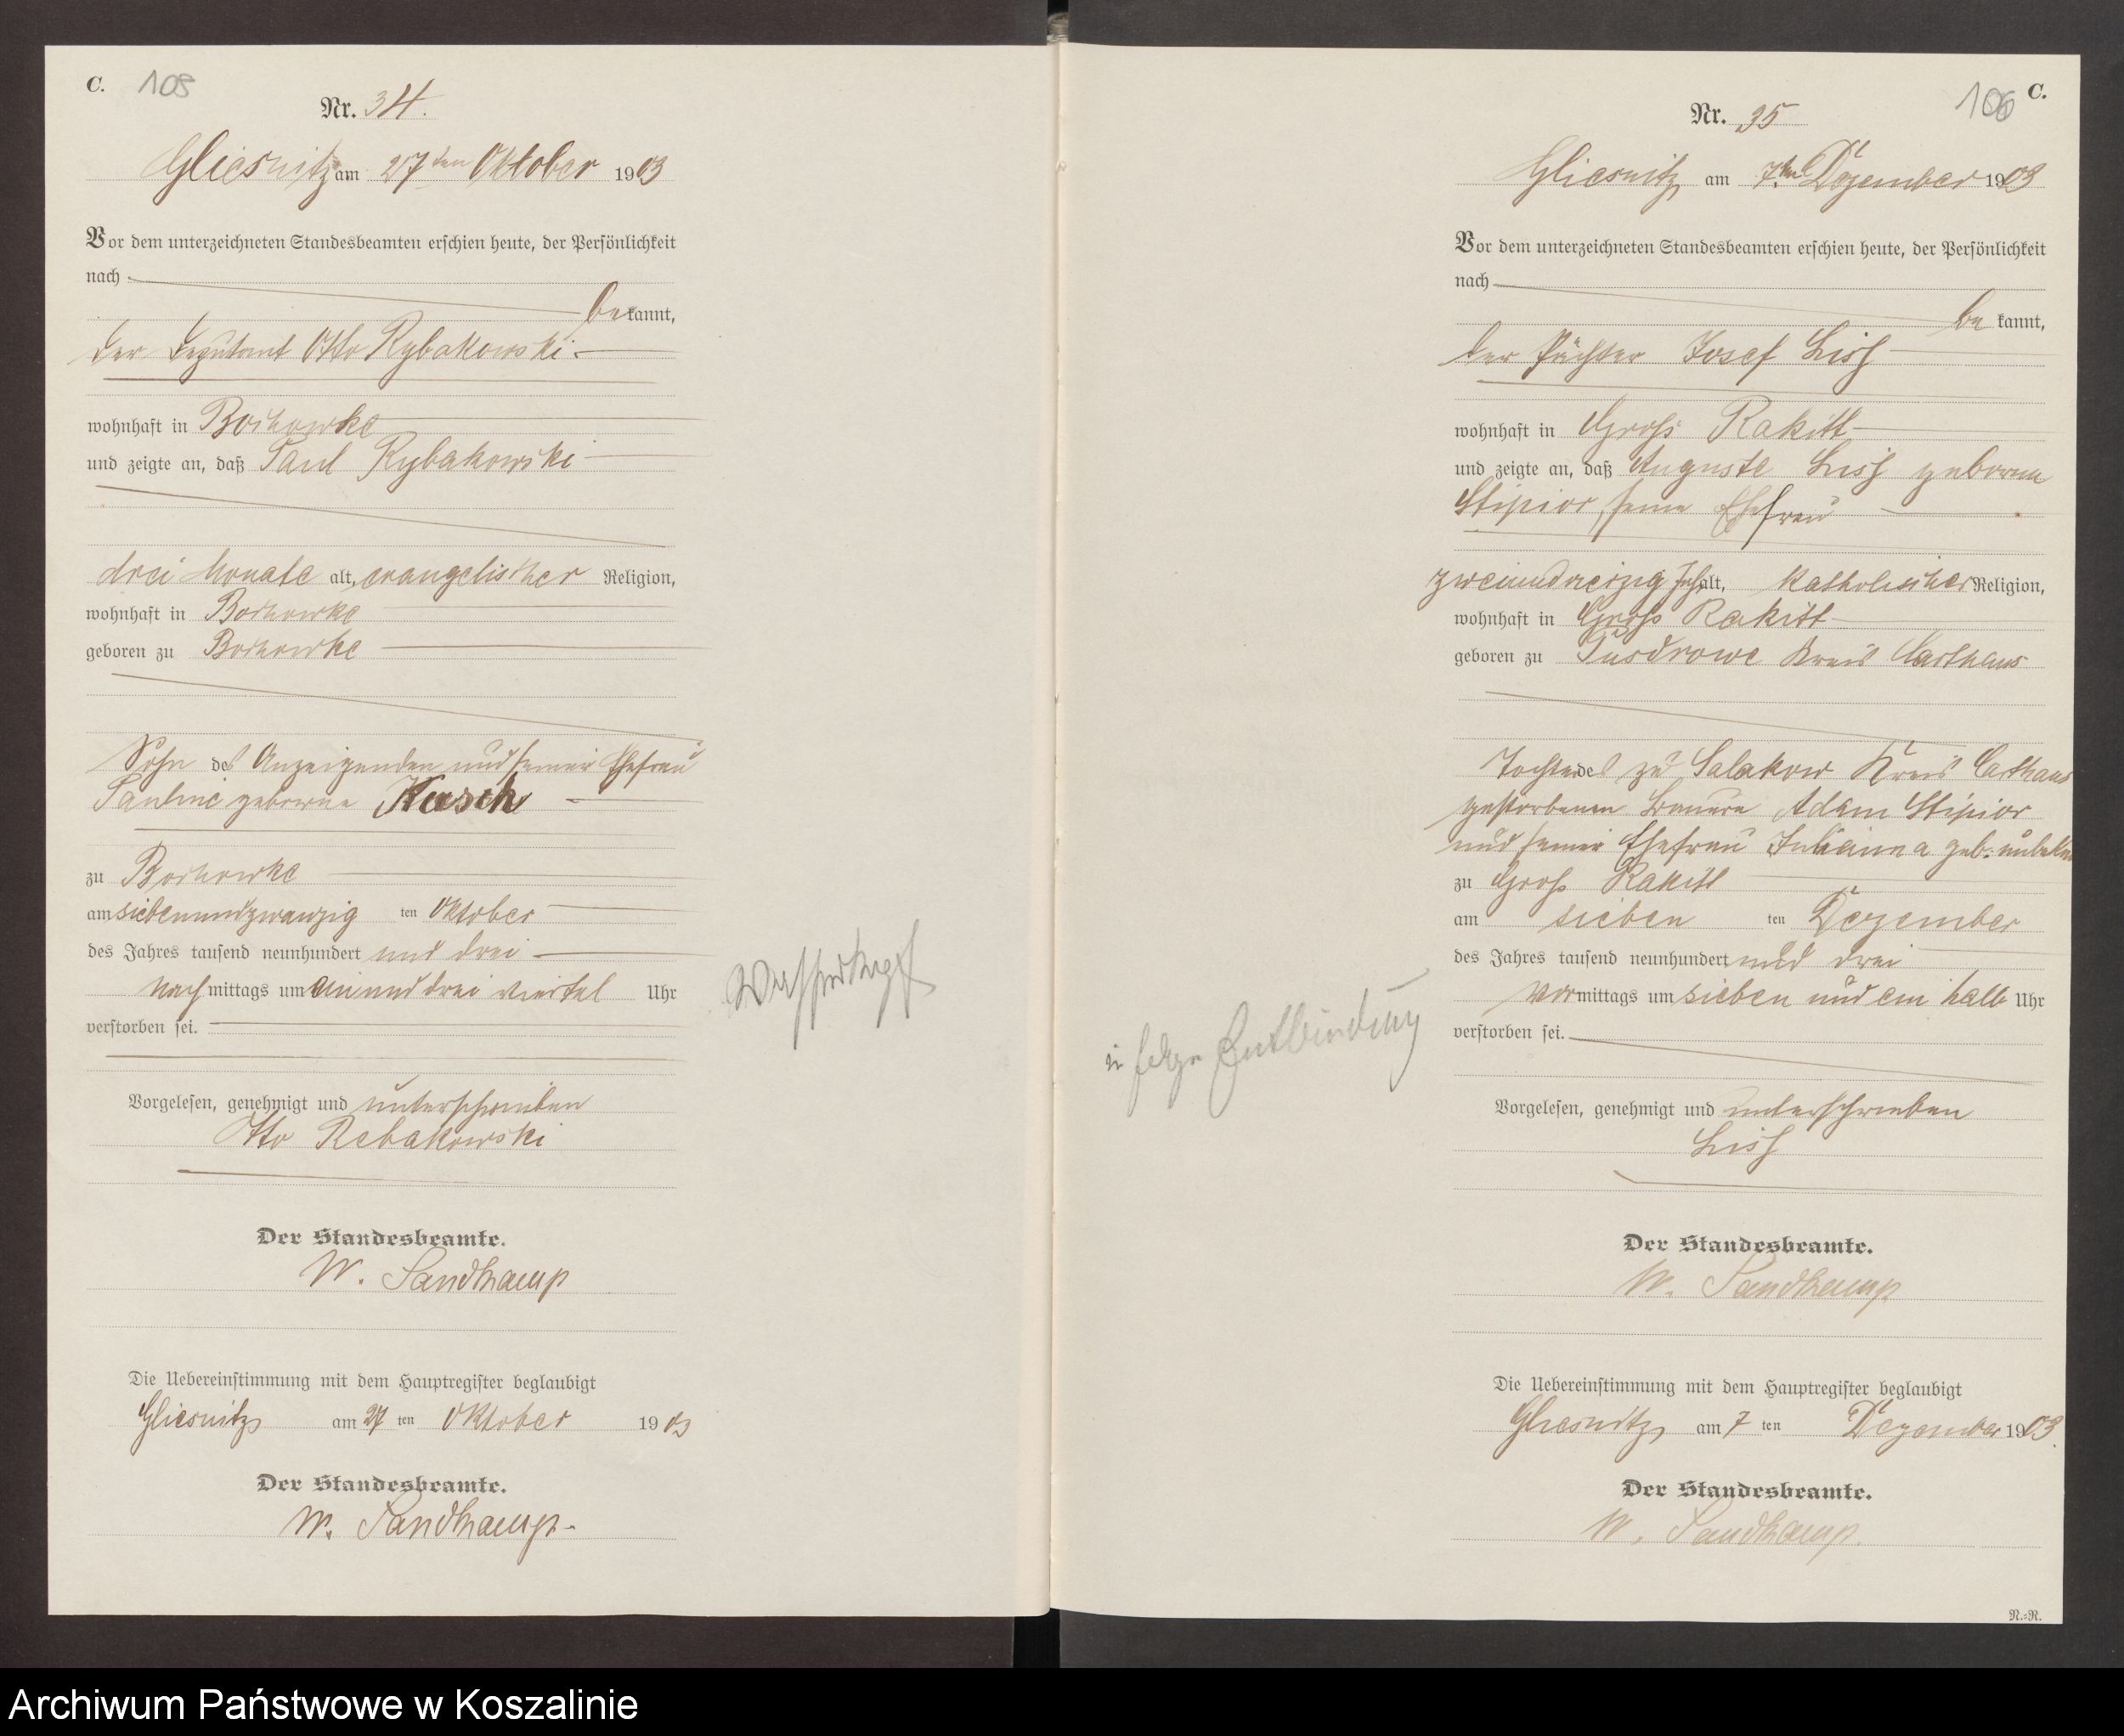 C. 105
Nr. 34.
Gliesnitz am 27ten Oktober 1903
Vor dem unterzeichneten Standesbeamten erschien heute, der Persönlichkeit
nach
bekannt,
der Deputant Otto Rybakowski
wohnhaft in Bochowke
und zeigte an, daß Paul Rybakowski
drei Monate alt, evangelischer Religion,
wohnhaft in Bochowke
geboren zu Bochowke
Sohn des Anzeigenden und seiner Ehefrau
Pauline geborene Kusch
zu Bochowke
am siebenundzwanzig ten Oktober
des Jahres tausend neunhundert und drei
Nachmittags um ein und drei viertel Uhr
verstorben sei.
Vorgelesen, genehmigt und unterschrieben
Otto Rebakowski
Der Standesbeamte.
W. Sandkamp
Die Uebereinstimmung mit dem Hauptregister beglaubigt
Gliesnitz am 27 ten Oktober 1903
Der Standesbeamte.
W. Sandkamp.
Wasserkopf
106 C.
Nr. 35
Gliesnitz am 7ten Dezember 1903
Vor dem unterzeichneten Standesbeamten erschien heute, der Persönlichkeit
nach
bekannt,
der Pächter Josef Lis
wohnhaft in Gross Rakitt
und zeigte an, daß Auguste Lis geborene
Stipior, seine Ehefrau
zweiundvierzig Jahr alt, katholischer Religion,
wohnhaft in Gross Rakitt
geboren zu Pusdrowo Kreis Carthaus
Tochter des zu Salakow Kreis Carthaus
gestorbenen Adam Stipior
und seiner Ehefrau Julianna geb. unbekan
zu Gross Rakitt
am sieben ten Dezember
des Jahres tausend neunhundert und drei
Vormittags um sieben und ein halb Uhr
verstorben sei.
Vorgelesen, genehmigt und unterschrieben
Lis
Der Standesbeamte.
W. Sandkamp
Die Uebereinstimmung mit dem Hauptregister beglaubigt
Gliesnitz am 7 ten Dezember 1903.
Der Standesbeamte.
W. Sandkamp.
in folge Entbindung
N.=N.
Archiwum Państwowe w Koszalinie